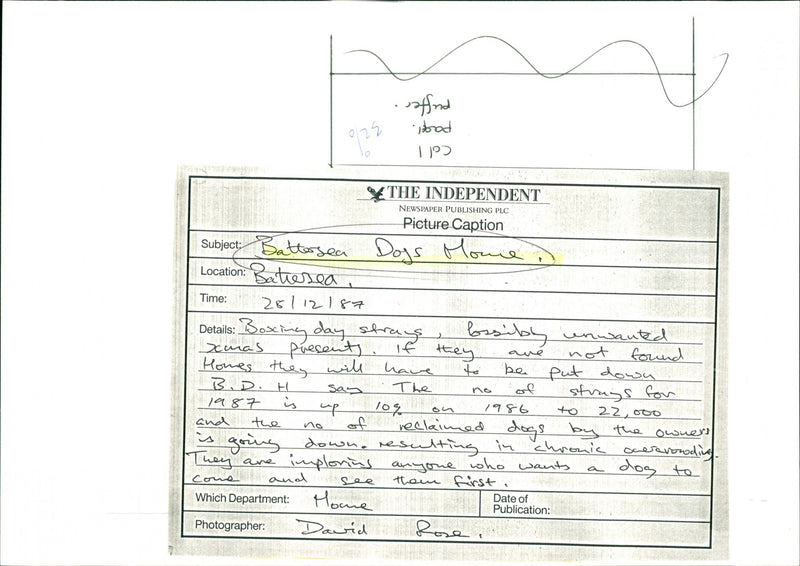 Col 1
pagi.
puffer.
THE INDEPENDENT
NEWSPAPER PUBLISHING PLC
Picture Caption
Subject: Battersea Dogs Home.
Location: Battersea.
Time: 28/12/87
Details: Boxing day strays, possibly unwanted
xmas presents. If they are not found
Homes they will have to be put down
B.D.H say The no of strays for
1987 is up 10% on 1986 to 22,000
and the no of reclaimed dogs by the owners
is going down. resulting in chronic overcrowding.
They are imploring anyone who wants a dog to
come and see them first.
Which Department: Home
Date of
Publication:
Photographer: David Rose.